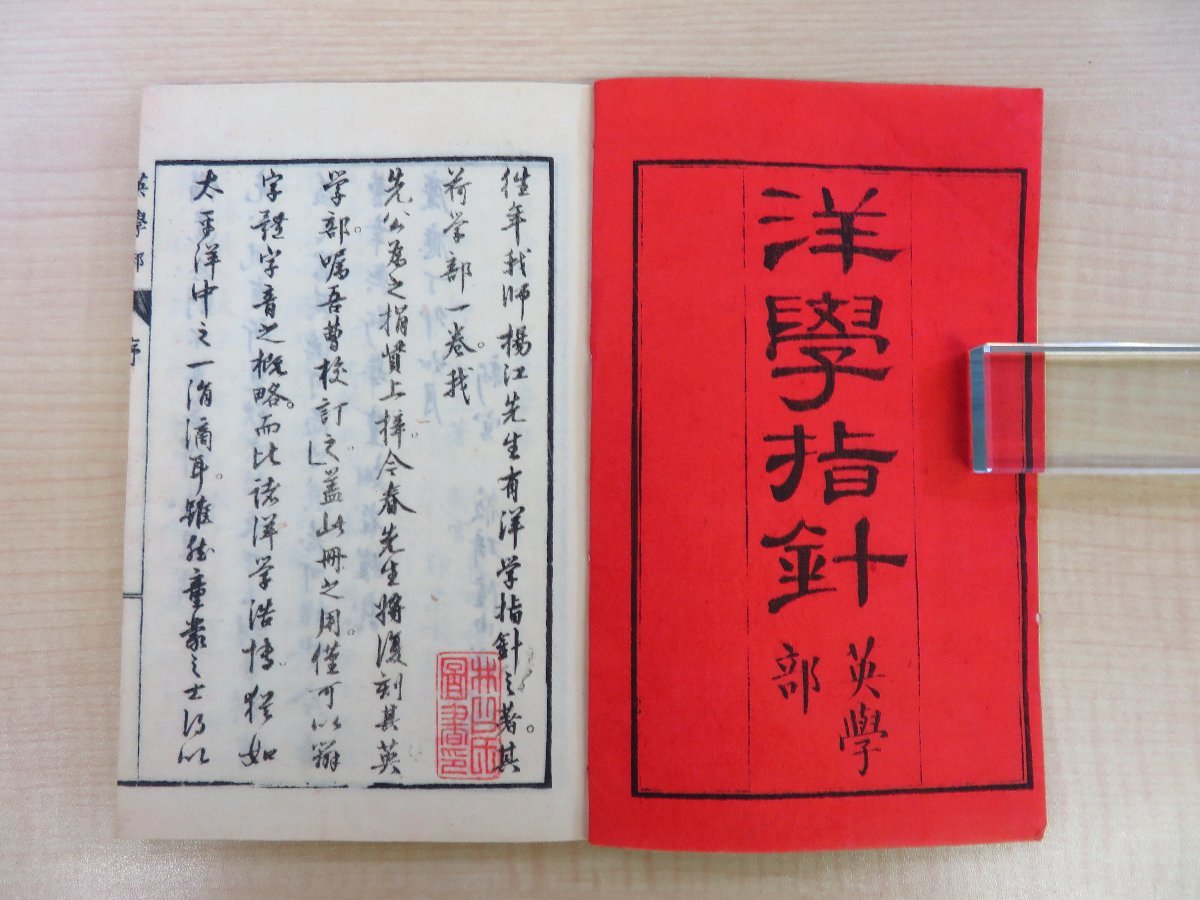 洋學指針
英學
部
往年我師楊江先生有洋学指針之著。其
荷学部一卷。我
先公為之捐貲上梓。今春先生將復刻其英
学部。嘱吾曹校訂之。蓋此冊之用。僅可以辨
字體字音之概略。而比諸洋学浩博。猶如
太平洋中之一涓滴耳。雖然童蒙之士得以
英學部
序
圖書印